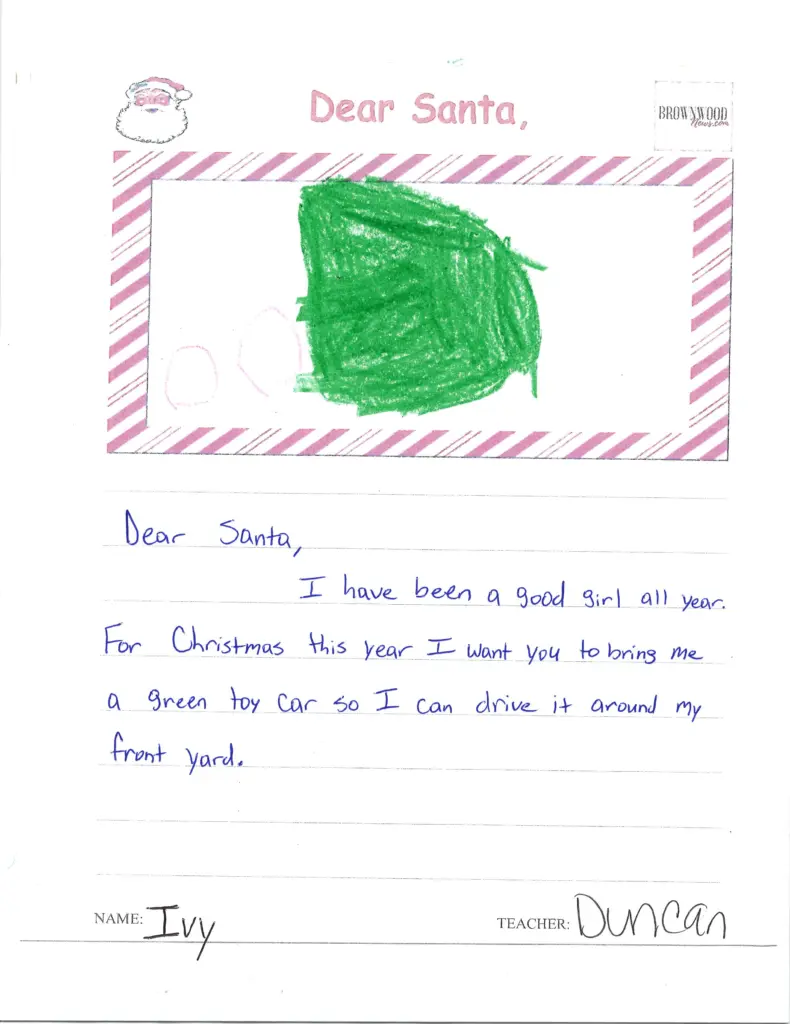 Dear Santa,
BROWNWOOD
News.com
Dear Santa,
I have been a good girl all year.
For Christmas this year I want you to bring me
a green toy car so I can drive it around my
front yard.
NAME: Ivy
TEACHER: Duncan